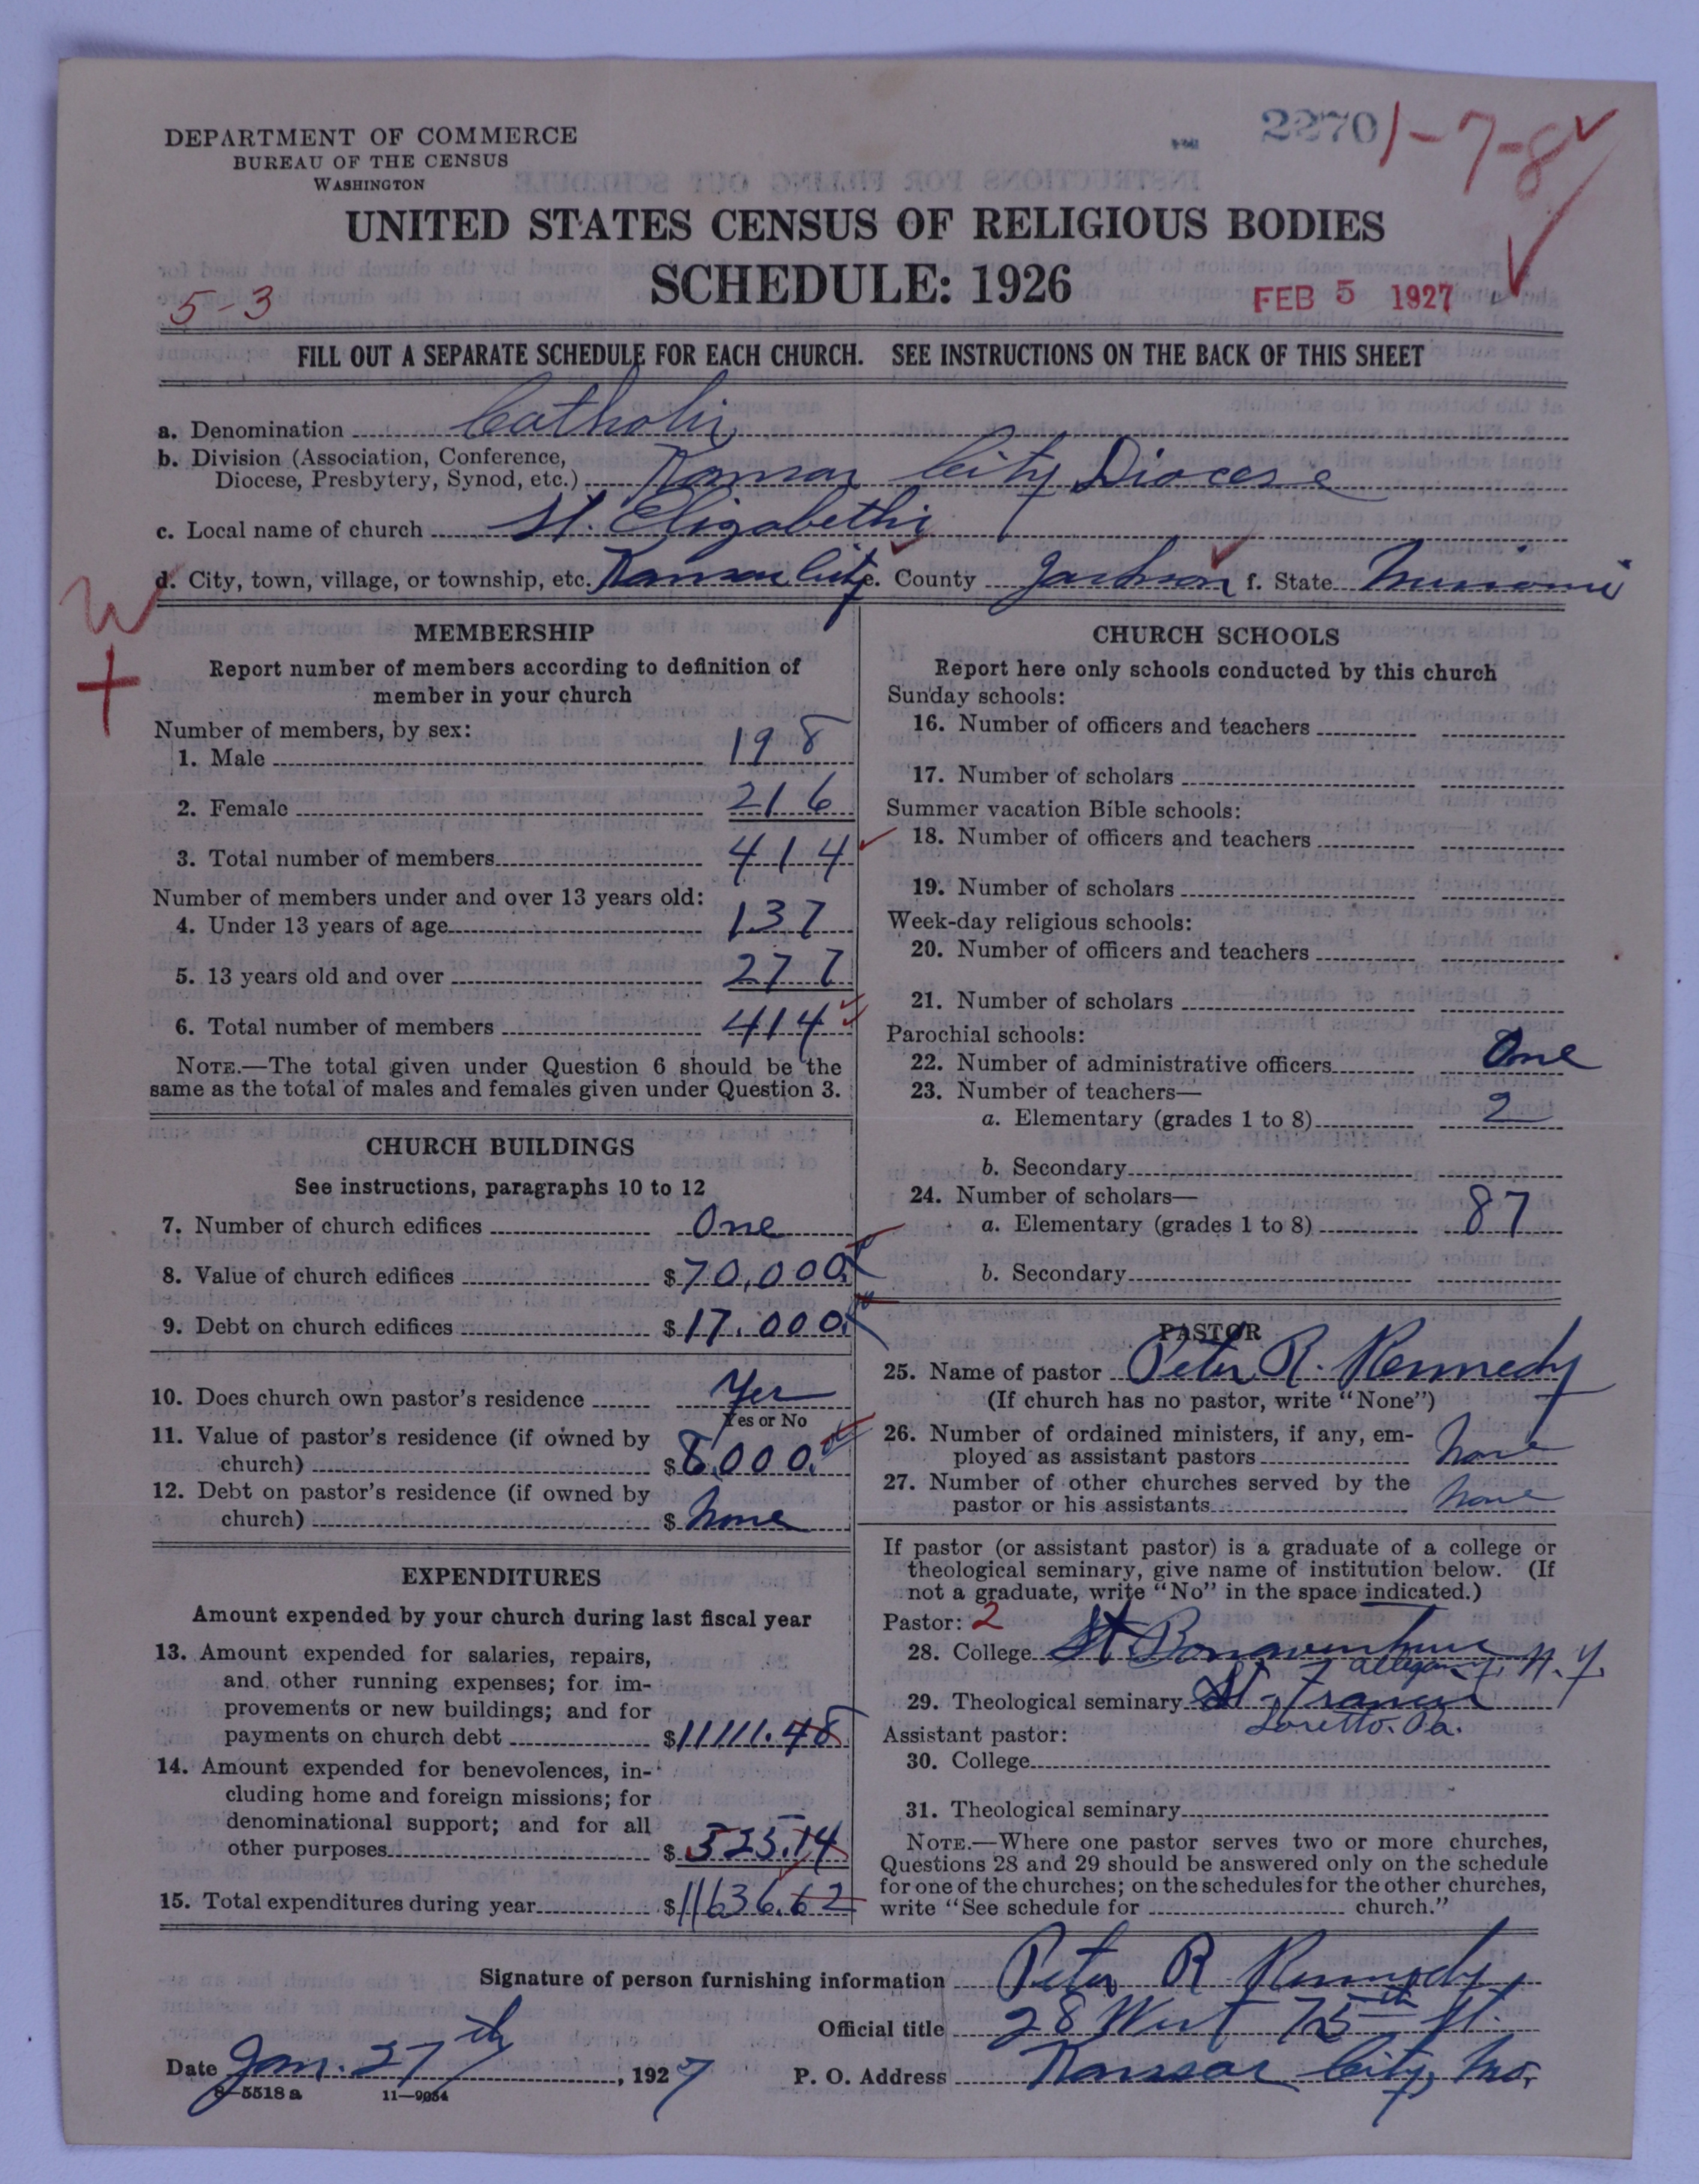 DEPARTMENT OF COMMERCE
BUREAU OF THE CENSUS
WASHINGTON
2270 1-7-8
UNITED STATES CENSUS OF RELIGIOUS BODIES
SCHEDULE: 1926
5-3
FEB 5 1927
FILL OUT A SEPARATE SCHEDULE FOR EACH CHURCH. SEE INSTRUCTIONS ON THE BACK OF THIS SHEET
a. Denomination Catholic
b. Division (Association, Conference,
Diocese, Presbytery, Synod, etc.) Kansas City Diocese
c. Local name of church St. Elizabeth's
d. City, town, village, or township, etc. Kansas City e. County Jackson f. State Missouri
W
+
MEMBERSHIP
Report number of members according to definition of
member in your church
Number of members, by sex:
1. Male 198
2. Female 216
3. Total number of members 414
Number of members under and over 13 years old:
4. Under 13 years of age 137
5. 13 years old and over 277
6. Total number of members 414
NOTE.—The total given under Question 6 should be the
same as the total of males and females given under Question 3.
CHURCH BUILDINGS
See instructions, paragraphs 10 to 12
7. Number of church edifices One
8. Value of church edifices $70,000.
9. Debt on church edifices $17.000.
10. Does church own pastor's residence Yes
Yes or No
11. Value of pastor's residence (if owned by
church) $8,000.
12. Debt on pastor's residence (if owned by
church) $ None
EXPENDITURES
Amount expended by your church during last fiscal year
13. Amount expended for salaries, repairs,
and other running expenses; for im-
provements or new buildings; and for
payments on church debt $11111.48
14. Amount expended for benevolences, in-
cluding home and foreign missions; for
denominational support; and for all
other purposes $525.14
15. Total expenditures during year $11636.62
CHURCH SCHOOLS
Report here only schools conducted by this church
Sunday schools:
16. Number of officers and teachers
17. Number of scholars
Summer vacation Bible schools:
18. Number of officers and teachers
19. Number of scholars
Week-day religious schools:
20. Number of officers and teachers
21. Number of scholars
Parochial schools:
22. Number of administrative officers One
23. Number of teachers—
a. Elementary (grades 1 to 8) 2
b. Secondary
24. Number of scholars—
a. Elementary (grades 1 to 8) 87
b. Secondary
PASTOR
25. Name of pastor Peter R. Kennedy
(If church has no pastor, write "None")
26. Number of ordained ministers, if any, em-
ployed as assistant pastors None
27. Number of other churches served by the
pastor or his assistants None
If pastor (or assistant pastor) is a graduate of a college or
theological seminary, give name of institution below. (If
not a graduate, write "No" in the space indicated.)
Pastor: 2
28. College St. Bonaventure
Allegany, N.Y.
29. Theological seminary St. Francis
Loretto. Pa.
Assistant pastor:
30. College
31. Theological seminary
NOTE.—Where one pastor serves two or more churches,
Questions 28 and 29 should be answered only on the schedule
for one of the churches; on the schedules for the other churches,
write "See schedule for church."
Signature of person furnishing information Peter R Kennedy
Official title 28 West 75th St.
Date Jan. 27th, 1927 P. O. Address Kansas City, Mo.
8-5518 a 11-9034